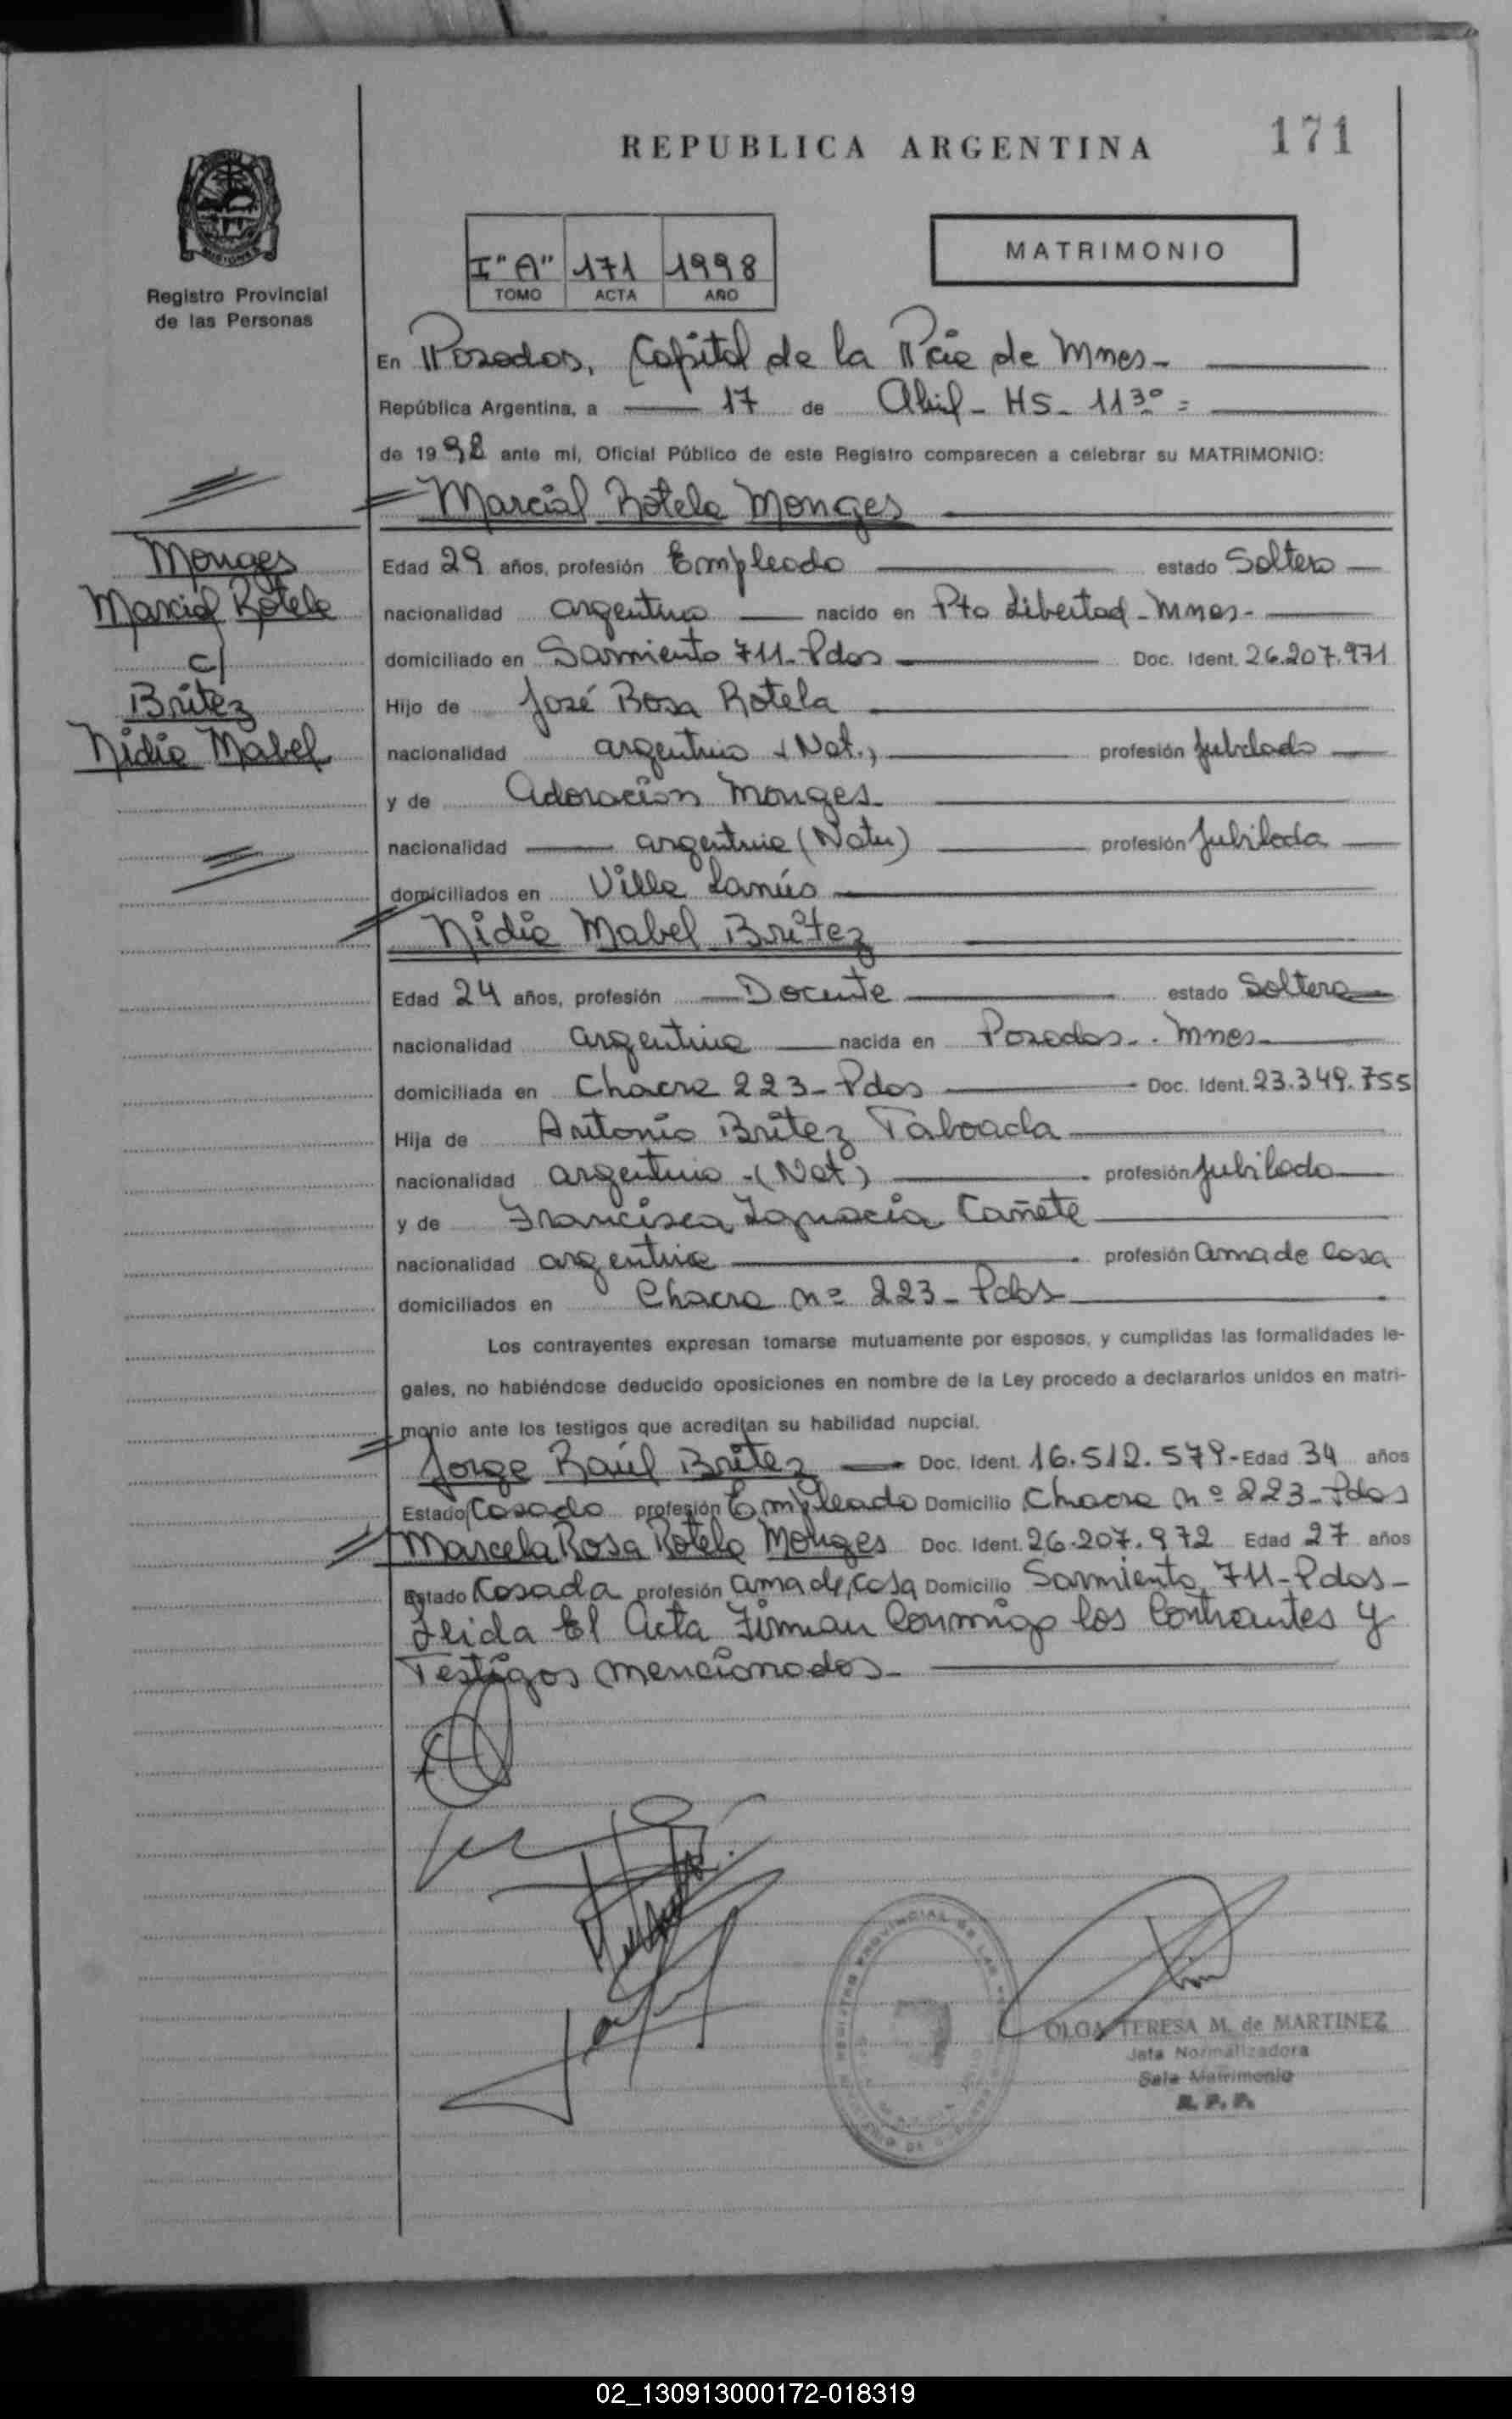 REPUBLICA ARGENTINA
171
MISIONES
Registro Provincial
de las Personas
I "A" 171 1998
TOMO ACTA AÑO
MATRIMONIO
En Posadas, Capital de la Pcia de Mnes-
República Argentina, a 17 de Abril - HS- 11 3º =
de 1998 ante mí, Oficial Público de este Registro comparecen a celebrar su MATRIMONIO:
Marcial Rotela Monges
Monges
Marcial Rotela
c/
Britez
Nidia Mabel
Edad 29 años, profesión Empleado estado Soltero
nacionalidad argentino nacido en Pto Libertad - Mnes-
domiciliado en Sarmiento 711- Pdos Doc. Ident. 26.207.971
Hijo de José Rosa Rotela
nacionalidad argentino (Nat.) profesión Jubilado
y de Adoración Monges
nacionalidad argentina (Natu) profesión Jubilada
domiciliados en Villa Lanús
Nidia Mabel Britez
Edad 24 años, profesión Docente estado Soltera
nacionalidad argentina nacida en Posadas - Mnes-
domiciliada en Chacra 223- Pdos Doc. Ident. 23.349.755
Hija de Antonio Britez Taboada
nacionalidad argentino - (Nat) profesión Jubilado
y de Francisca Ignacia Cañete
nacionalidad argentina profesión ama de casa
domiciliados en Chacra nº 223- Pdos
Los contrayentes expresan tomarse mutuamente por esposos, y cumplidas las formalidades le-
gales, no habiéndose deducido oposiciones en nombre de la Ley procedo a declararlos unidos en matri-
monio ante los testigos que acreditan su habilidad nupcial.
Jorge Raúl Britez Doc. Ident. 16.512.579- Edad 34 años
Estado Casado profesión Empleado Domicilio Chacra nº 223- Pdos
Marcela Rosa Rotela Monges Doc. Ident. 26.207.972 Edad 27 años
Estado Casada profesión ama de casa Domicilio Sarmiento 711- Pdos-
Leida El Acta Firman Conmigo los Contrantes y
Testigos mencionados-
OLGA TERESA M. de MARTINEZ
Jefa Normalizadora
Sala Matrimonio
R. P. P.
02_130913000172-018319